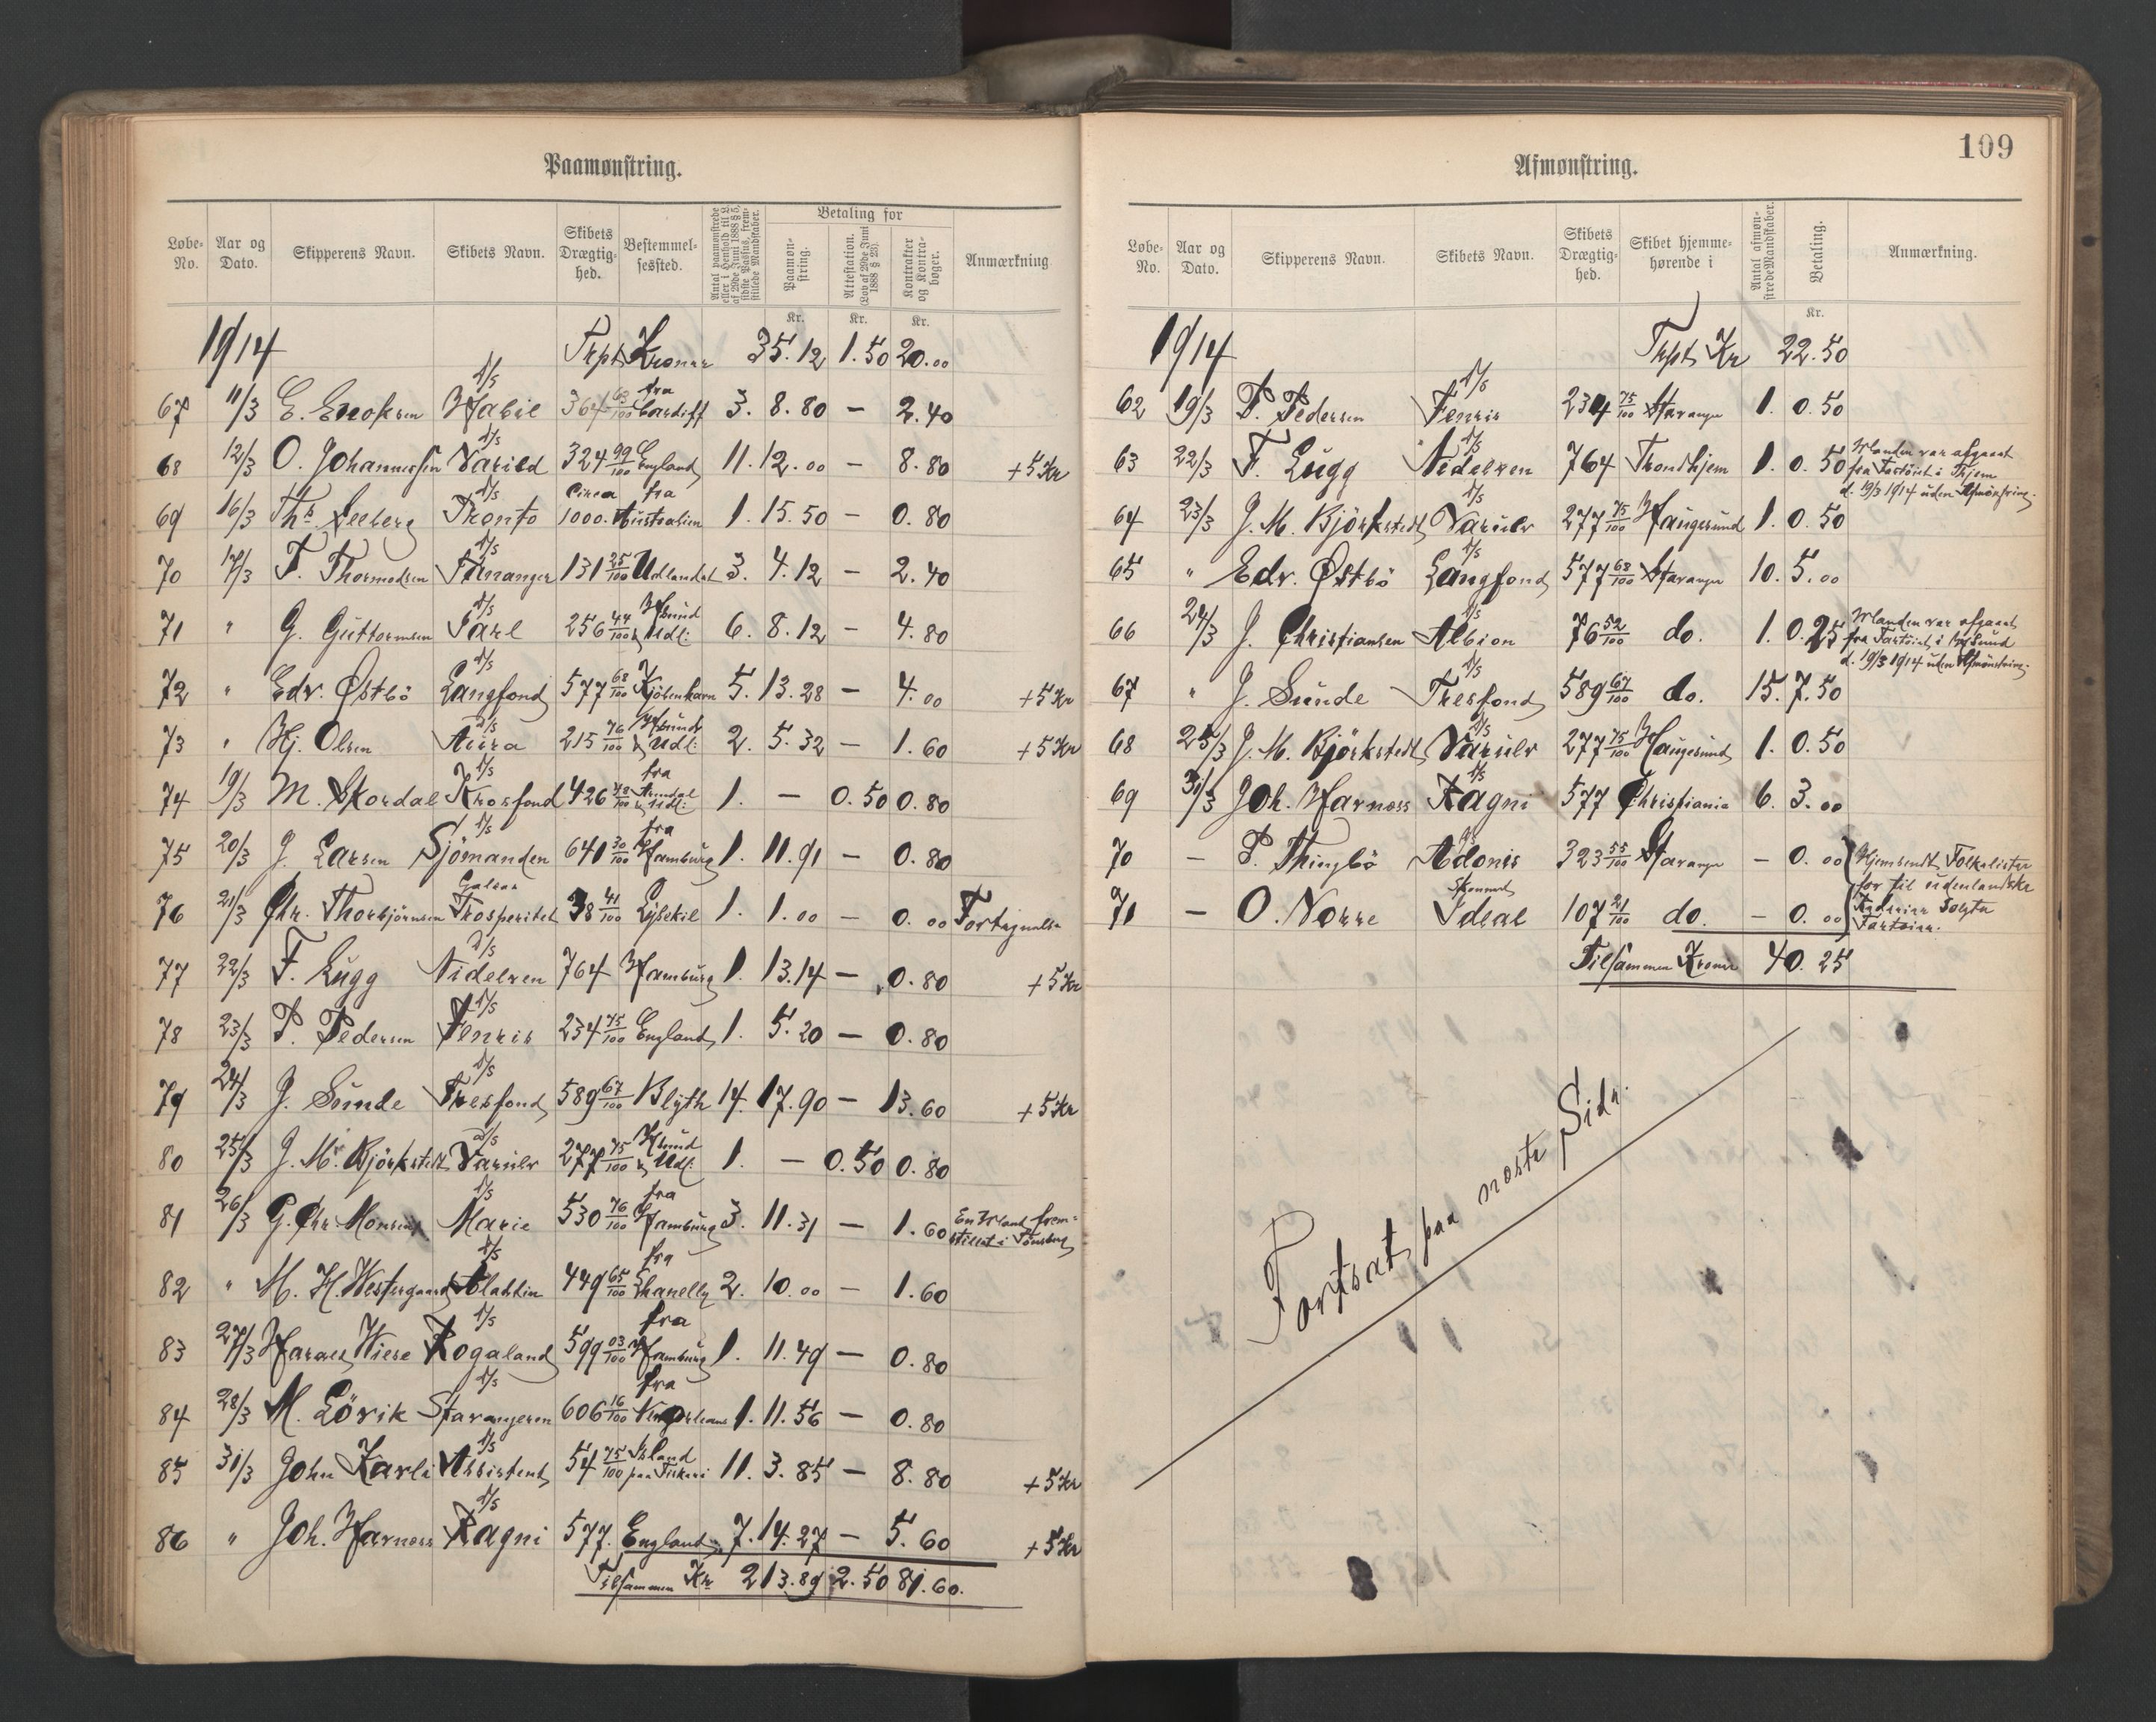 109
Paamønstring.
Løbe-No. Aar og Dato. Skipperens Navn. Skibets Navn. Skibets Drægtig-hed. Bestemmel-sessted. Antal paamønstrede eller i Henhold til L. af 29de Juni 1888 § 5, sidste Passus, frem-stillede Mandskaber. Betaling for Paamøn-string. Attestation. (Lov af 29de Juni 1888 § 23). Kontrakter og Kontra-bøger. Anmærkning
Kr. Kr. Kr.
1914 Trpt Kroner 35.12 1.50 20.00
67 11/3 E. Enoksen D/S Habil 364 63/100 fra Cardiff 3. 8.80 – 2.40
68 12/3 O. Johannessen D/S Varild 324 99/100 England 11. 12.00 – 8.80 +5Kr
69 16/3 Thr. Seeberg D/S Pronto Circa 1000. fra Australien 1. 15.50 – 0.80
70 17/3 F. Thormodsen D/S Tananger 131 25/100 Udlandet 3. 4.12 – 2.40
71 " G. Guttormsen D/S Jarl 256 44/100 Hsund & Udl: 6. 8.12 – 4.80
72 " Edv. Østbö D/S Langfond 577 68/100 Kjöbenhavn 5. 13.28 – 4.00 +5Kr
73 " Hj. Olsen D/S Aura 215 76/100 Hsund & Udl: 2. 5.32 – 1.60 +5Kr
74 19/3 M. Skordal D/S Krosfond 426 48/100 fra Arendal & Udl: 1. – 0.50 0.80
75 20/3 J. Larsen D/S Sjömanden 641 30/100 fra Hamburg 1. 11.91 – 0.80
76 21/3 Chr. Thorbjörnsen Galeas Prosperitet 38 41/100 Lysekil 1. 1.00 – 0.00 Fortegnelse
77 22/3 F. Lugg D/S Nidelven 764 Hamburg 1. 13.14 – 0.80 +5Kr
78 23/3 P. Pedersen D/S Fenris 234 75/100 England 1. 5.20 – 0.80
79 24/3 J. Sunde D/S Tresfond 589 67/100 Blyth 14. 17.90 – 13.60 +5Kr
80 25/3 J. M. Björkstedt D/S Varulv 277 75/100 Hsund & Udl: 1. – 0.50 0.80
81 26/3 G. Chr. Monsen D/S Marie 530 76/100 fra Hamburg 3. 11.31 – 1.60 En Mand frem-
stillet i Tönsberg
82 " M. H. Westergaard D/S 449 65/100 fra Llanelly 2. 10.00 – 1.60
83 27/3 Harald Wiese D/S Rogaland 599 03/100 fra Hamburg 1. 11.49 – 0.80
84 28/3 M. Lövik D/S Stavangeren 606 16/100 fra 1. 11.56 – 0.80
85 31/3 John Karli D/S Assistent 54 75/100 Island paa Fiskeri 11. 3.85 – 8.80 +5Kr
86 " Joh. Harness D/S Ragni 577. England 7. 14.27 – 5.60 +5Kr
Tilsammen Kr 213.89 2.50 81.60.
Afmønstring.
Løbe-No. Aar og Dato. Skipperens Navn. Skibets Navn. Skibets Drægtig-hed. Skibet hjemme-hørende i Antal afmøn-strede Mandskaber. Betaling. Anmærkning.
Kr.
1914 Trpt Kr 22.50
62 19/3 P. Pedersen D/S Fenris 234 75/100 Stavanger 1. 0.50
63 22/3 F. Lugg D/S Nidelven 764 Trondhjem 1. 0.50 Manden var afgaaet
fra Fartöiet i Thjem
d. 19/3 1914 uden Afmönstring.
64 23/3 J. M. Björkstedt D/S Varulv 277 75/100 Haugesund 1. 0.50
65 " Edv. Østbö D/S Langfond 577 68/100 Stavanger 10. 5.00
66 24/3 J. Christiansen D/S Albion 76 52/100 do. 1. 0.25 Manden var afgaaet
fra Fartöiet i Hsund
d. 19/3 1914 uden Afmönstring.
67 " J. Sunde D/S Tresfond 589 67/100 do. 15. 7.50
68 25/3 J. M. Björkstedt D/S Varulv 277 75/100 Haugesund 1. 0.50
69 31/3 Joh. Harness D/S Ragni 577 Christiania 6. 3.00
70 – P. Thingbö Adonis 323 55/100 Stavanger – 0.00 Hjemsendt Folkelister
for til udenlandske
71 – O. Norre Skonnert Ideal 107 21/100 do. – 0.00 Rederier Solgte
Fartöier.
Tilsammen Kroner 40.25
Fortsat paa næste Side.